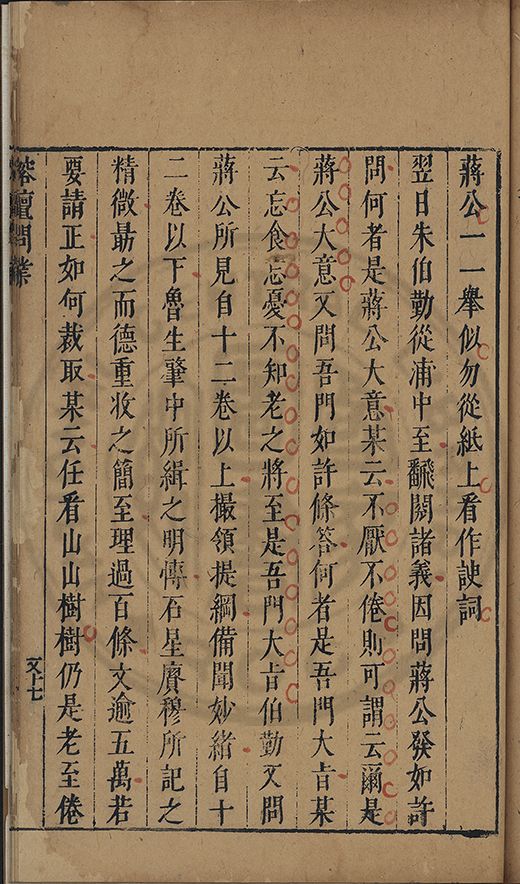 蔣公一一舉似勿從紙上看作諛詞
翌日朱伯勤從浦中至翻閱諸義因問蔣公發如許
問何者是蔣公大意某云不厭不倦則可謂云爾是
蔣公大意又問吾門如許條答何者是吾門大旨某
云忘食忘憂不知老之將至是吾門大旨伯勤又問
蔣公所見自十二卷以上撮領提綱備聞妙緒自十
二卷以下魯生肇中所緝之明傳石星賡穆所記之
精微最之而德重收之簡至理過百條文逾五萬若
要請正如何裁取某云任看山山樹樹仍是老至倦
榕壇問業
又十七